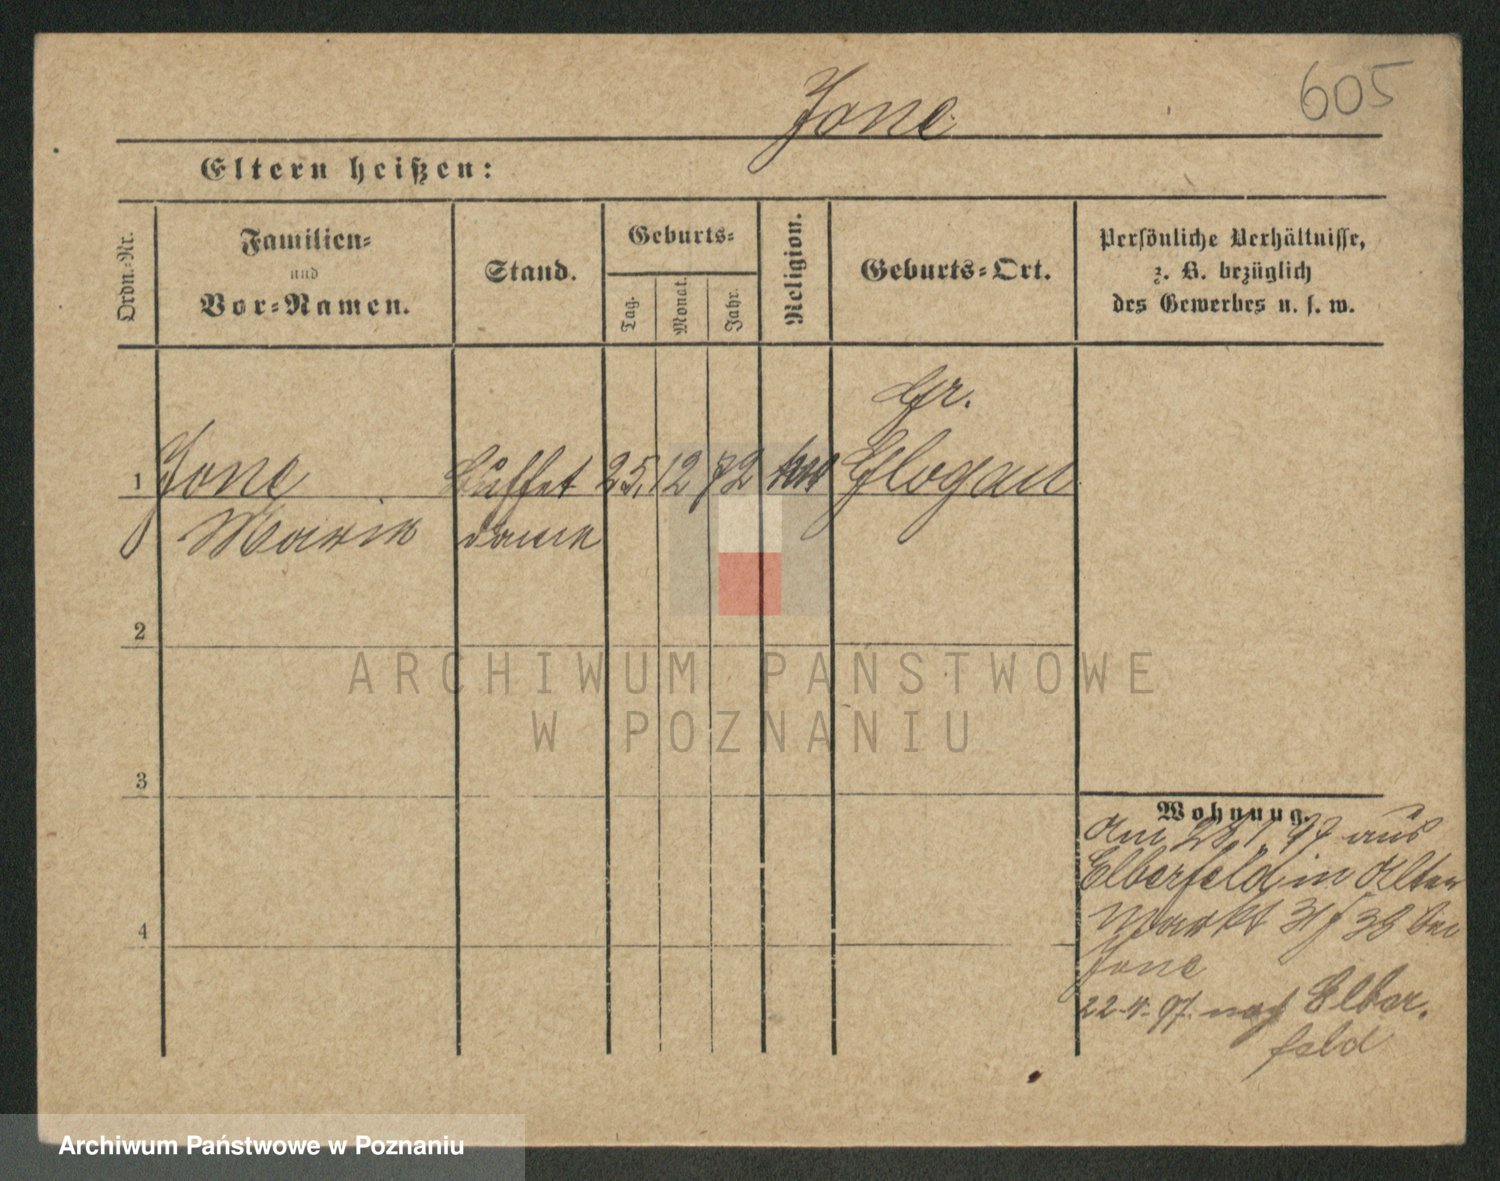 605
Jone
Eltern heißen:
Ordn.-Nr.
Familien-
und
Vor-Namen.
Stand.
Geburts-
Tag.
Monat.
Jahr.
Religion.
Geburts-Ort.
Persönliche Verhältnisse,
z. B. bezüglich
des Gewerbes u. s. w.
Gr.
1 Jone Buffet 25. 12 72 Glogau
Marie dame
2
3
4
Wohnung.
Am 97 aus
Elberfeld in Alten
Markt 38 bei
Jone
22-4-97. nach Elber-
feld
ARCHIWUM PAŃSTWOWE
W POZNANIU
Archiwum Państwowe w Poznaniu